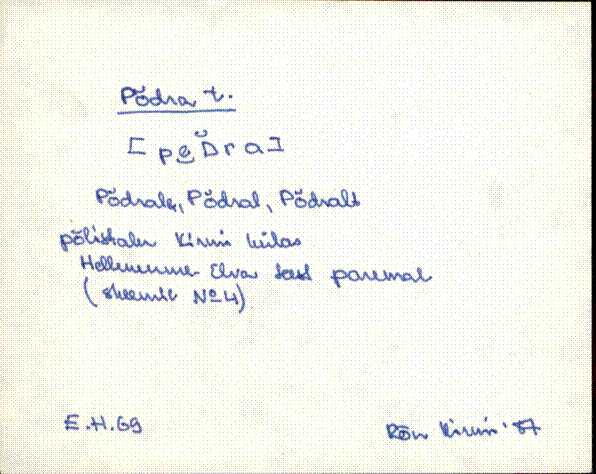 Põdra t.
[pe̮Dra]
Põdrale, Põdral, Põdralt
põlistalu Kirivi külas
Hellenurme-Elva teest paremal
(skeemil № 4)
E.H.69
Rõn Kirivi '87